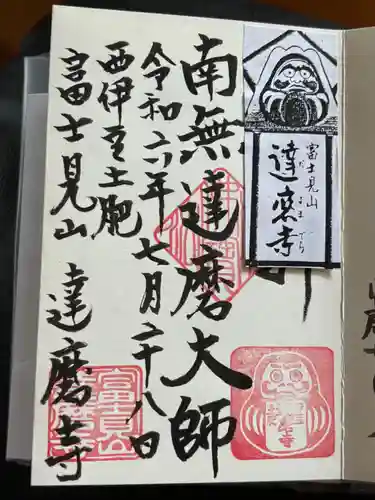 南無達磨大師
令和六年七月二十八日
西伊豆土肥
富士見山 達磨寺
富士見山
達磨寺
だるまでら